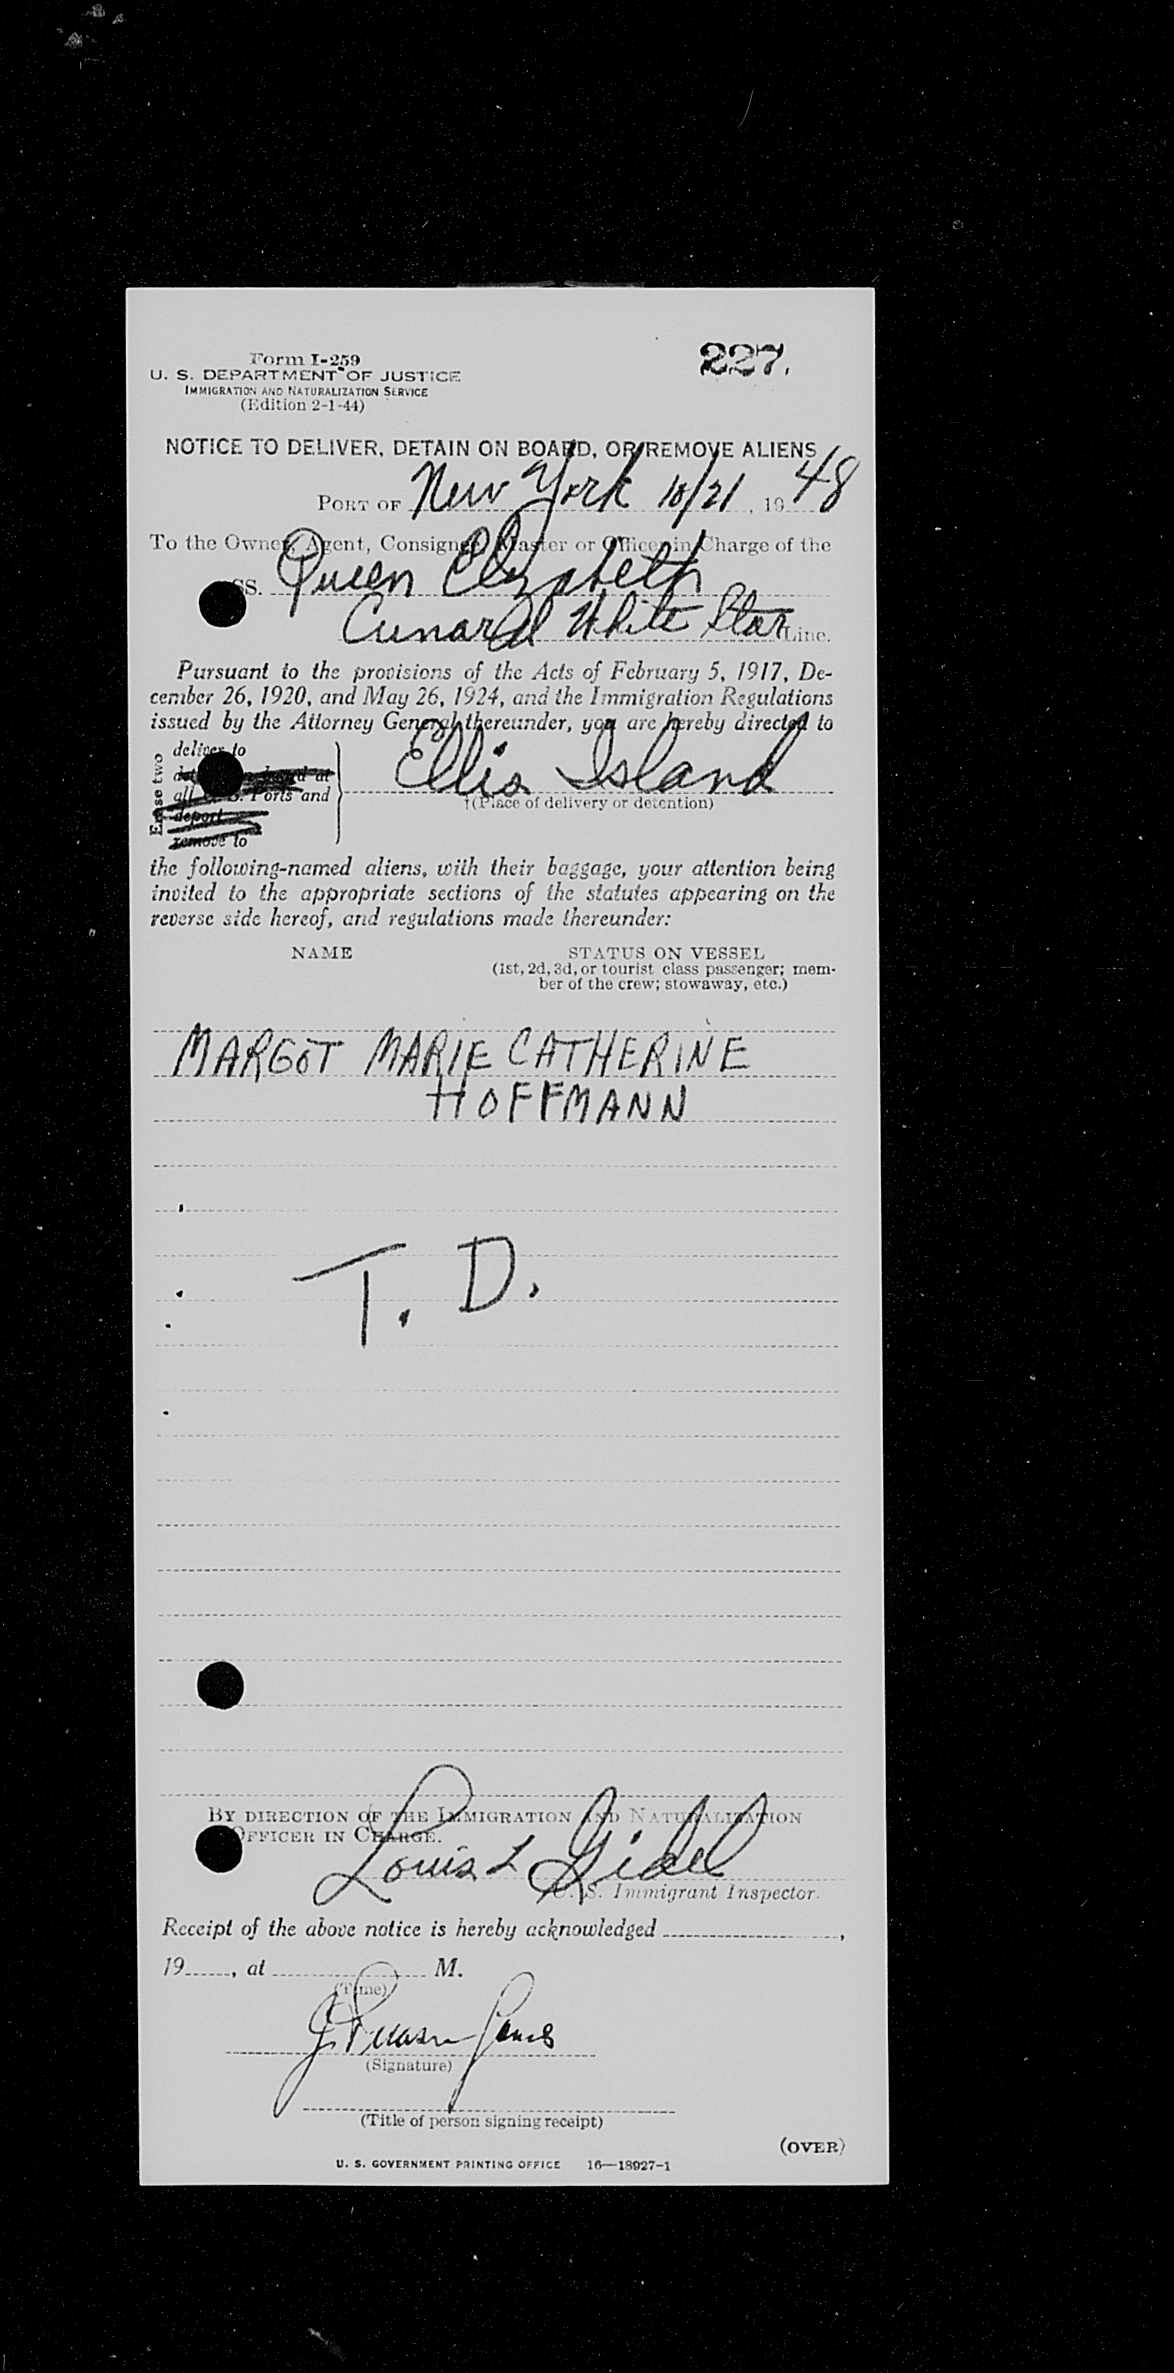 Form I-259
U. S. DEPARTMENT OF JUSTICE
IMMIGRATION AND NATURALIZATION SERVICE
(Edition 2-1-44)
227.
NOTICE TO DELIVER, DETAIN ON BOARD, OR REMOVE ALIENS
PORT OF New York 10/21, 1948
To the Owner, Agent, Consignee, Master or Officer in Charge of the
SS. Queen Elizabeth
Cunard White Star Line.
Pursuant to the provisions of the Acts of February 5, 1917, De-
cember 26, 1920, and May 26, 1924, and the Immigration Regulations
issued by the Attorney General thereunder, you are hereby directed to
Erase two
deliver to
board at
all U. S. Ports and
deport
remove to
Ellis Island
†(Place of delivery or detention)
the following-named aliens, with their baggage, your attention being
invited to the appropriate sections of the statutes appearing on the
reverse side hereof, and regulations made thereunder:
NAME STATUS ON VESSEL
(1st, 2d, 3d, or tourist class passenger; mem-
ber of the crew; stowaway, etc.)
MARGOT MARIE CATHERINE
HOFFMANN
T. D.
BY DIRECTION OF THE IMMIGRATION AND NATURALIZATION
OFFICER IN CHARGE.
Louis L
U. S. Immigrant Inspector.
Receipt of the above notice is hereby acknowledged ,
19 , at M.
(Time)
(Signature)
(Title of person signing receipt)
(OVER)
U. S. GOVERNMENT PRINTING OFFICE 16—18927-1